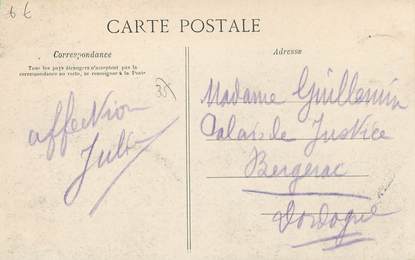 6€
CARTE POSTALE
Correspondance
Tous les pays étrangers n'acceptent pas la
correspondance au verso, se renseigner à la Poste
Adresse
35
affection
Julia
Madame Guillemin
Palais de Justice
Bergerac
Dordogne